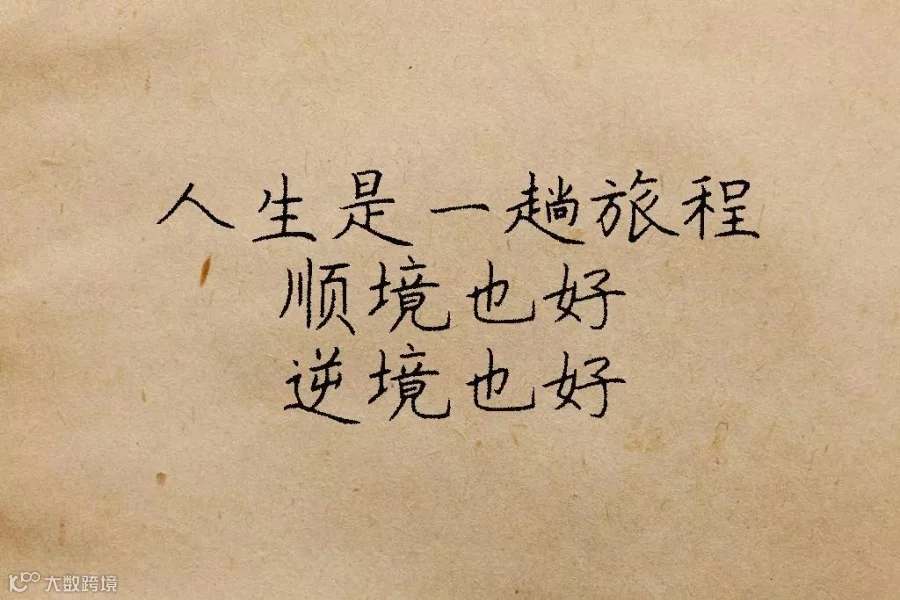 人生是一趟旅程
顺境也好
逆境也好
大数跨境